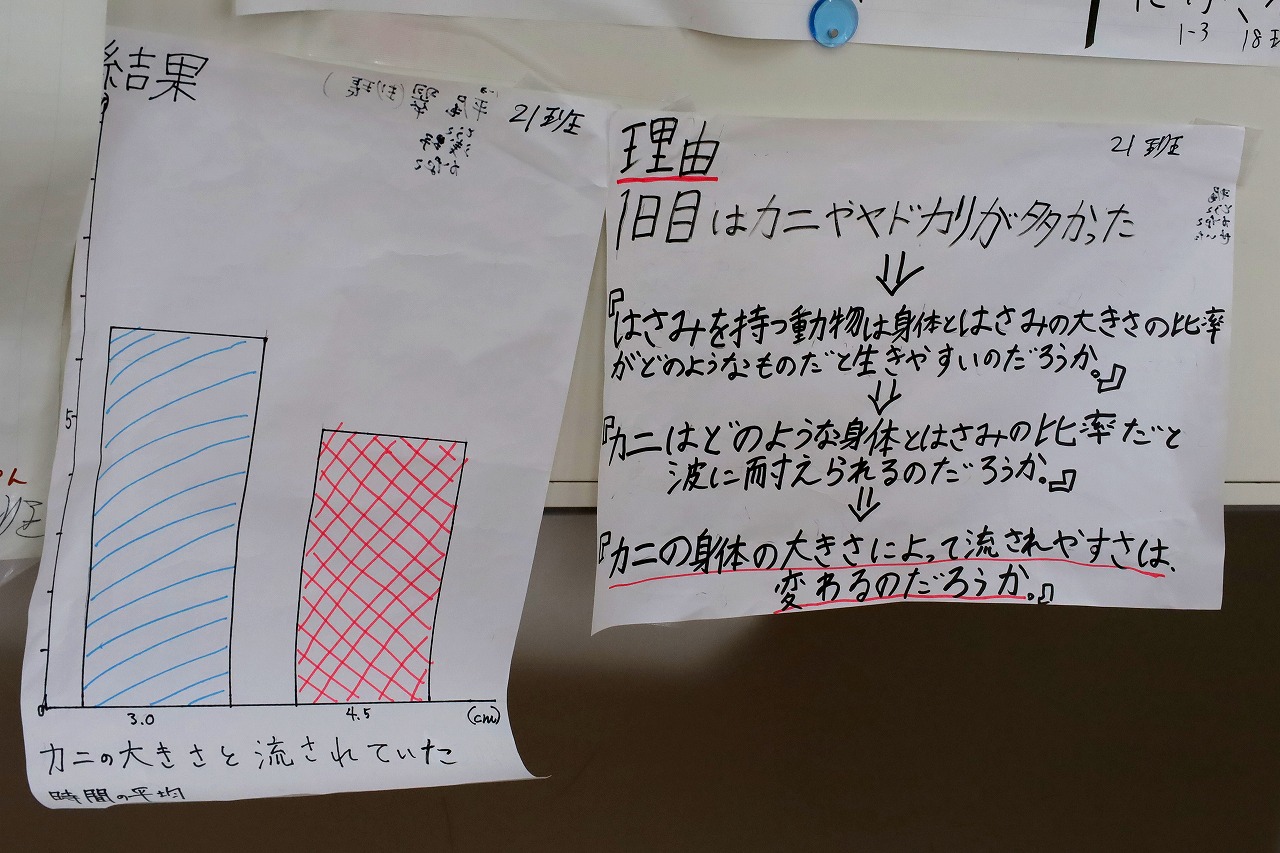 1-3 18班
結果
21班
5
0
3.0 4.5 (cm)
カニの大きさと流されていた
時間の平均
班
21班
理由
1日目はカニやヤドカリが多かった
『はさみを持つ動物は身体とはさみの大きさの比率
がどのようなものだと生きやすいのだろうか。』
『カニはどのような身体とはさみの比率だと
波に耐えられるのだろうか。』
『カニの身体の大きさによって流されやすさは、
変わるのだろうか。』